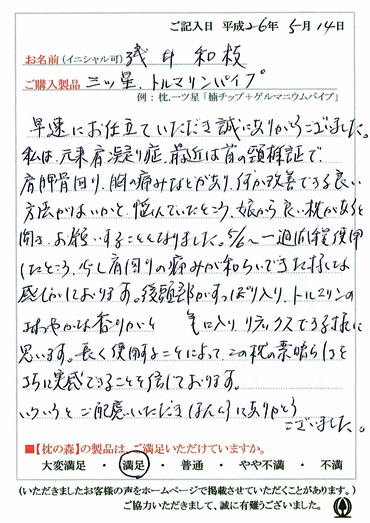 ご記入日 平成26年 5月 14日
お名前(イニシャル可) 井 和枝
ご購入製品 三ッ星、トルマリンパイプ
例:枕.一ツ星「楠チップ+ゲルマニウムパイプ」
早速にお仕立ていただき誠にありがとうございました。
私は、元来肩凝り症、最近は首の頚椎証で、
肩胛骨回り、胸の痛みなどがあり、何か改善できる良い
方法がないかと悩んでいたところ、娘から良い枕があると
聞き、お願いすることとなりました。5/6〜一週間程使用
したところ、少し肩回りの痛みが和らいできた様な
感じがしております。後頭部がすっぽり入り、トルマリンの
さわやかな香りが 気に入り、リラックスできる様に
思います。長く使用することによって、この枕の素晴らしさを
さらに実感できることを信じております。
いろいろとご配慮いただきほんとうにありがとう
ございました。
■【枕の森】の製品は、ご満足いただけていますか。
大変満足 ・ 満足 ・ 普通 ・ やや不満 ・ 不満
(いただきましたお客様の声をホームページで掲載させていただくことがあります。)
ご協力いただきまして、誠に有難うございました。